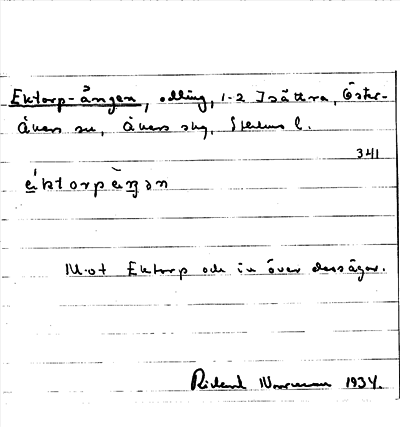 Ektorp-ängen, odling, 1-2 Isättra, Öster-
Åkers sn, Åkers skg, Sthlms l.
341
éktorpæ̀ŋən
Mot Ektorp och in över dess ägor.
Rickard 1934.